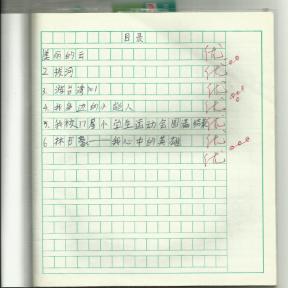 目录
美丽的云 优
2. 拔河 优
3. 优
4. 我身边的小能人 优
5. 我校17届小学生运动会圆满结束 优
6. 林巧稚——我心中的英雄 优